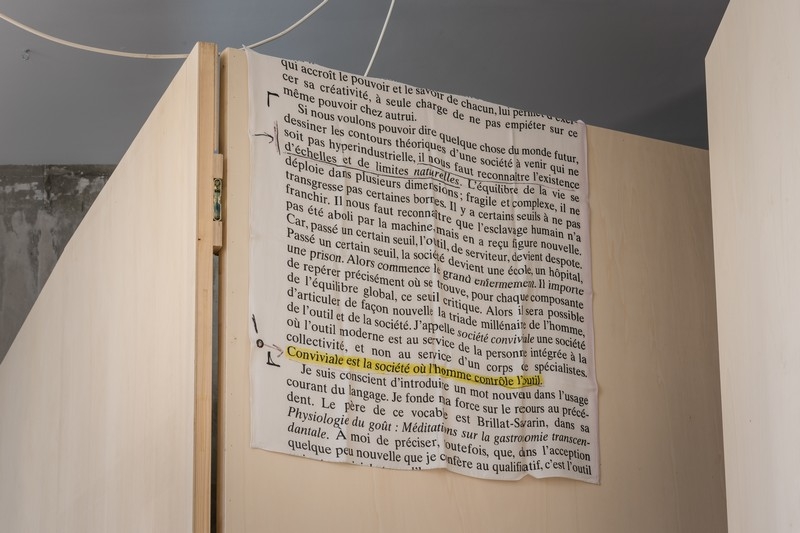 qui accroît le pouvoir et le savoir de chacun, lui permet d'exer-
cer sa créativité, à seule charge de ne pas empiéter sur ce
même pouvoir chez autrui.
Si nous voulons pouvoir dire quelque chose du monde futur,
dessiner les contours théoriques d'une société à venir qui ne
soit pas hyperindustrielle, il nous faut reconnaître l'existence
d'échelles et de limites naturelles. L'équilibre de la vie se
déploie dans plusieurs dimensions; fragile et complexe, il ne
transgresse pas certaines bornes. Il y a certains seuils à ne pas
franchir. Il nous faut reconnaître que l'esclavage humain n'a
pas été aboli par la machine, mais en a reçu figure nouvelle.
Car, passé un certain seuil, l'outil, de serviteur, devient despote.
Passé un certain seuil, la société devient une école, un hôpital,
une prison. Alors commence le grand enfermement. Il importe
de repérer précisément où se trouve, pour chaque composante
de l'équilibre global, ce seuil critique. Alors il sera possible
d'articuler de façon nouvelle la triade millénaire de l'homme,
de l'outil et de la société. J'appelle société conviviale une société
où l'outil moderne est au service de la personne intégrée à la
collectivité, et non au service d'un corps de spécialistes.
Conviviale est la société où l'homme contrôle l'outil.
Je suis conscient d'introduire un mot nouveau dans l'usage
courant du langage. Je fonde ma force sur le recours au précé-
dent. Le père de ce vocable est Brillat-Savarin, dans sa
Physiologie du goût : Méditations sur la gastronomie transcen-
dantale. À moi de préciser, toutefois, que, dans l'acception
quelque peu nouvelle que je confère au qualificatif, c'est l'outil